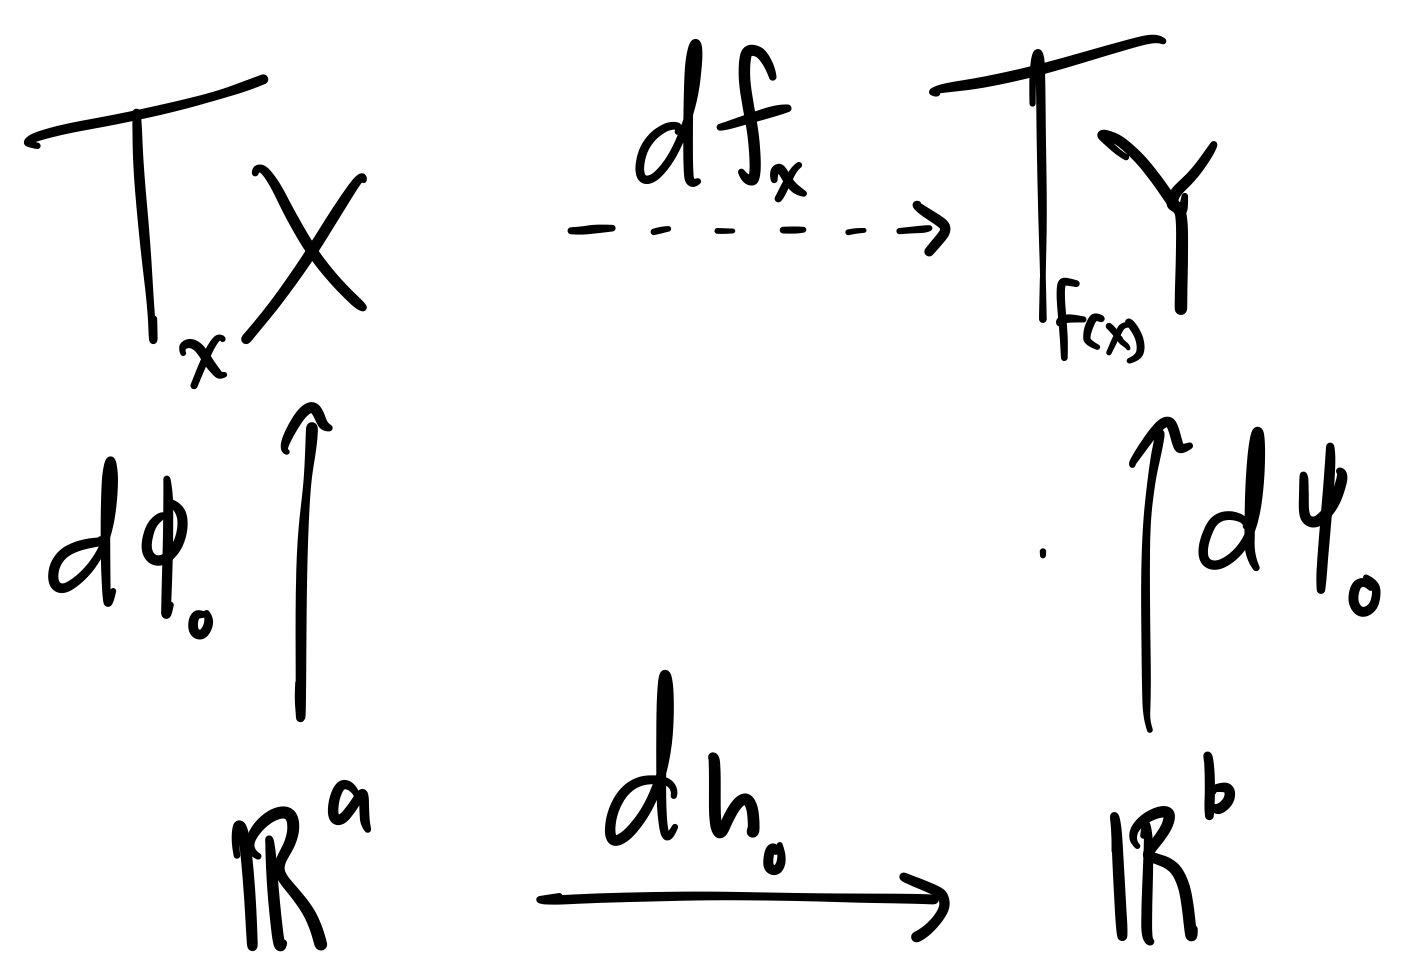 TₓX dfₓ T_f(x)Y
dϕ₀ dψ₀
ℝᵃ dh₀ ℝᵇ